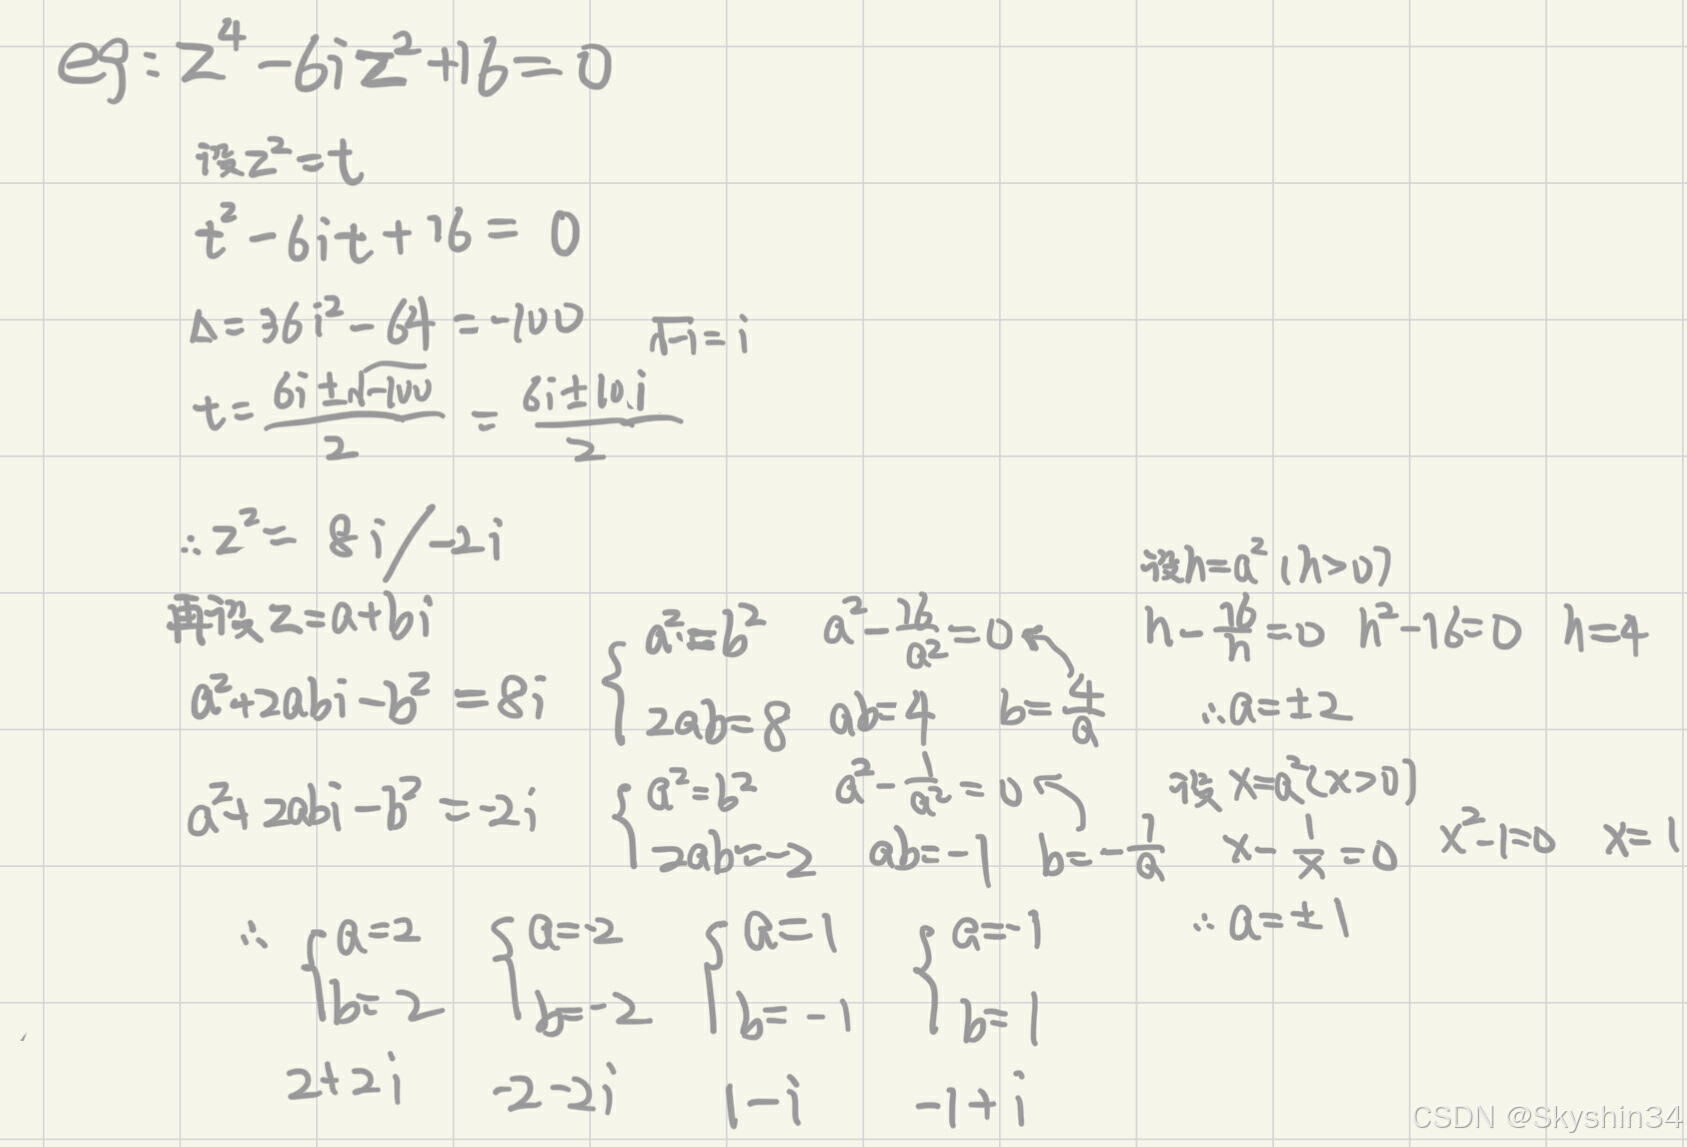 eg: z⁴-6iz²+16=0
设z²=t
t²-6it+16=0
Δ=36i²-64=-100 √-i=i
t=(6i±√-100)/2=(6i±10i)/2
∴z²=8i/-2i
再设z=a+bi
a²+2abi-b²=8i
{a²=b² a²-16/a²=0
2ab=8 ab=4 b=4/a
设h=a²(h>0)
h-16/h=0 h²-16=0 h=4
∴a=±2
a²+2abi-b²=-2i
{a²=b² a²-1/a²=0
2ab=-2 ab=-1 b=-1/a
设x=a²(x>0)
x-1/x=0 x²-1=0 x=1
∴a=±1
∴{a=2 {a=-2 {a=1 {a=-1
b=2 b=-2 b=-1 b=1
2+2i -2-2i 1-i -1+i
CSDN @Skyshin34